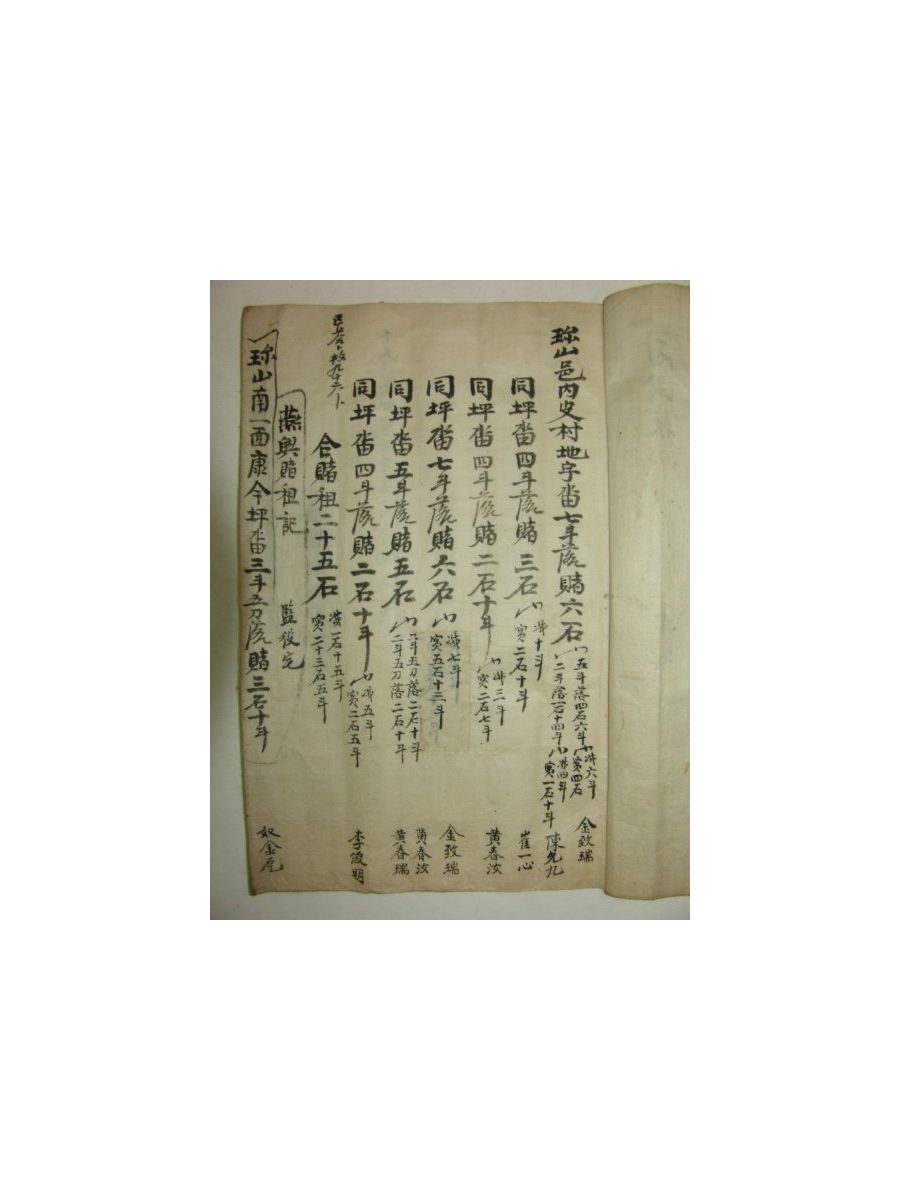 珍山邑內史村地字畓七斗落賭六石
五斗落四石六斗 減六斗 實四石 金致瑞
二斗落一石十四斗 減四斗 實一石十斗 陳允九
同坪畓四斗落賭三石 減十斗 實二石十斗 崔一心
同坪畓四斗落賭二石十斗 減三斗 實二石七斗 黃春汝
同坪畓七斗落賭六石 減七斗 實五石十三斗 金致瑞
同坪畓五斗落賭五石
二斗五刀落二石十斗 黃春汝
二斗五刀落二石十斗 黃春瑞
同坪畓四斗落賭二石十斗 減五斗 實二石五斗 李俊明
合賭租二十五石 減一石十五斗 實二十三石五斗
燕興賭租記 監役宅
珍山南一面康今坪畓三斗五刀落賭三石十斗 奴金